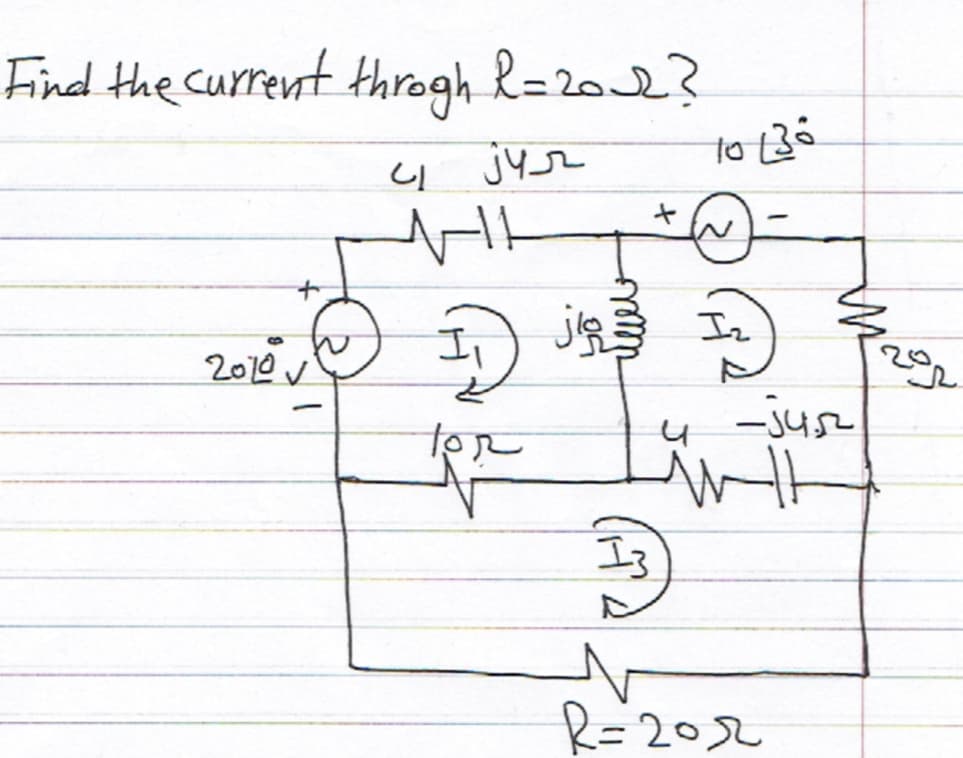 Find the current throgh R=20Ω?
4 j4Ω
10∠30°
+ -
+
20∠0° V
-
I1
j10Ω
I2
20Ω
10Ω
4 -j4Ω
I3
R=20Ω